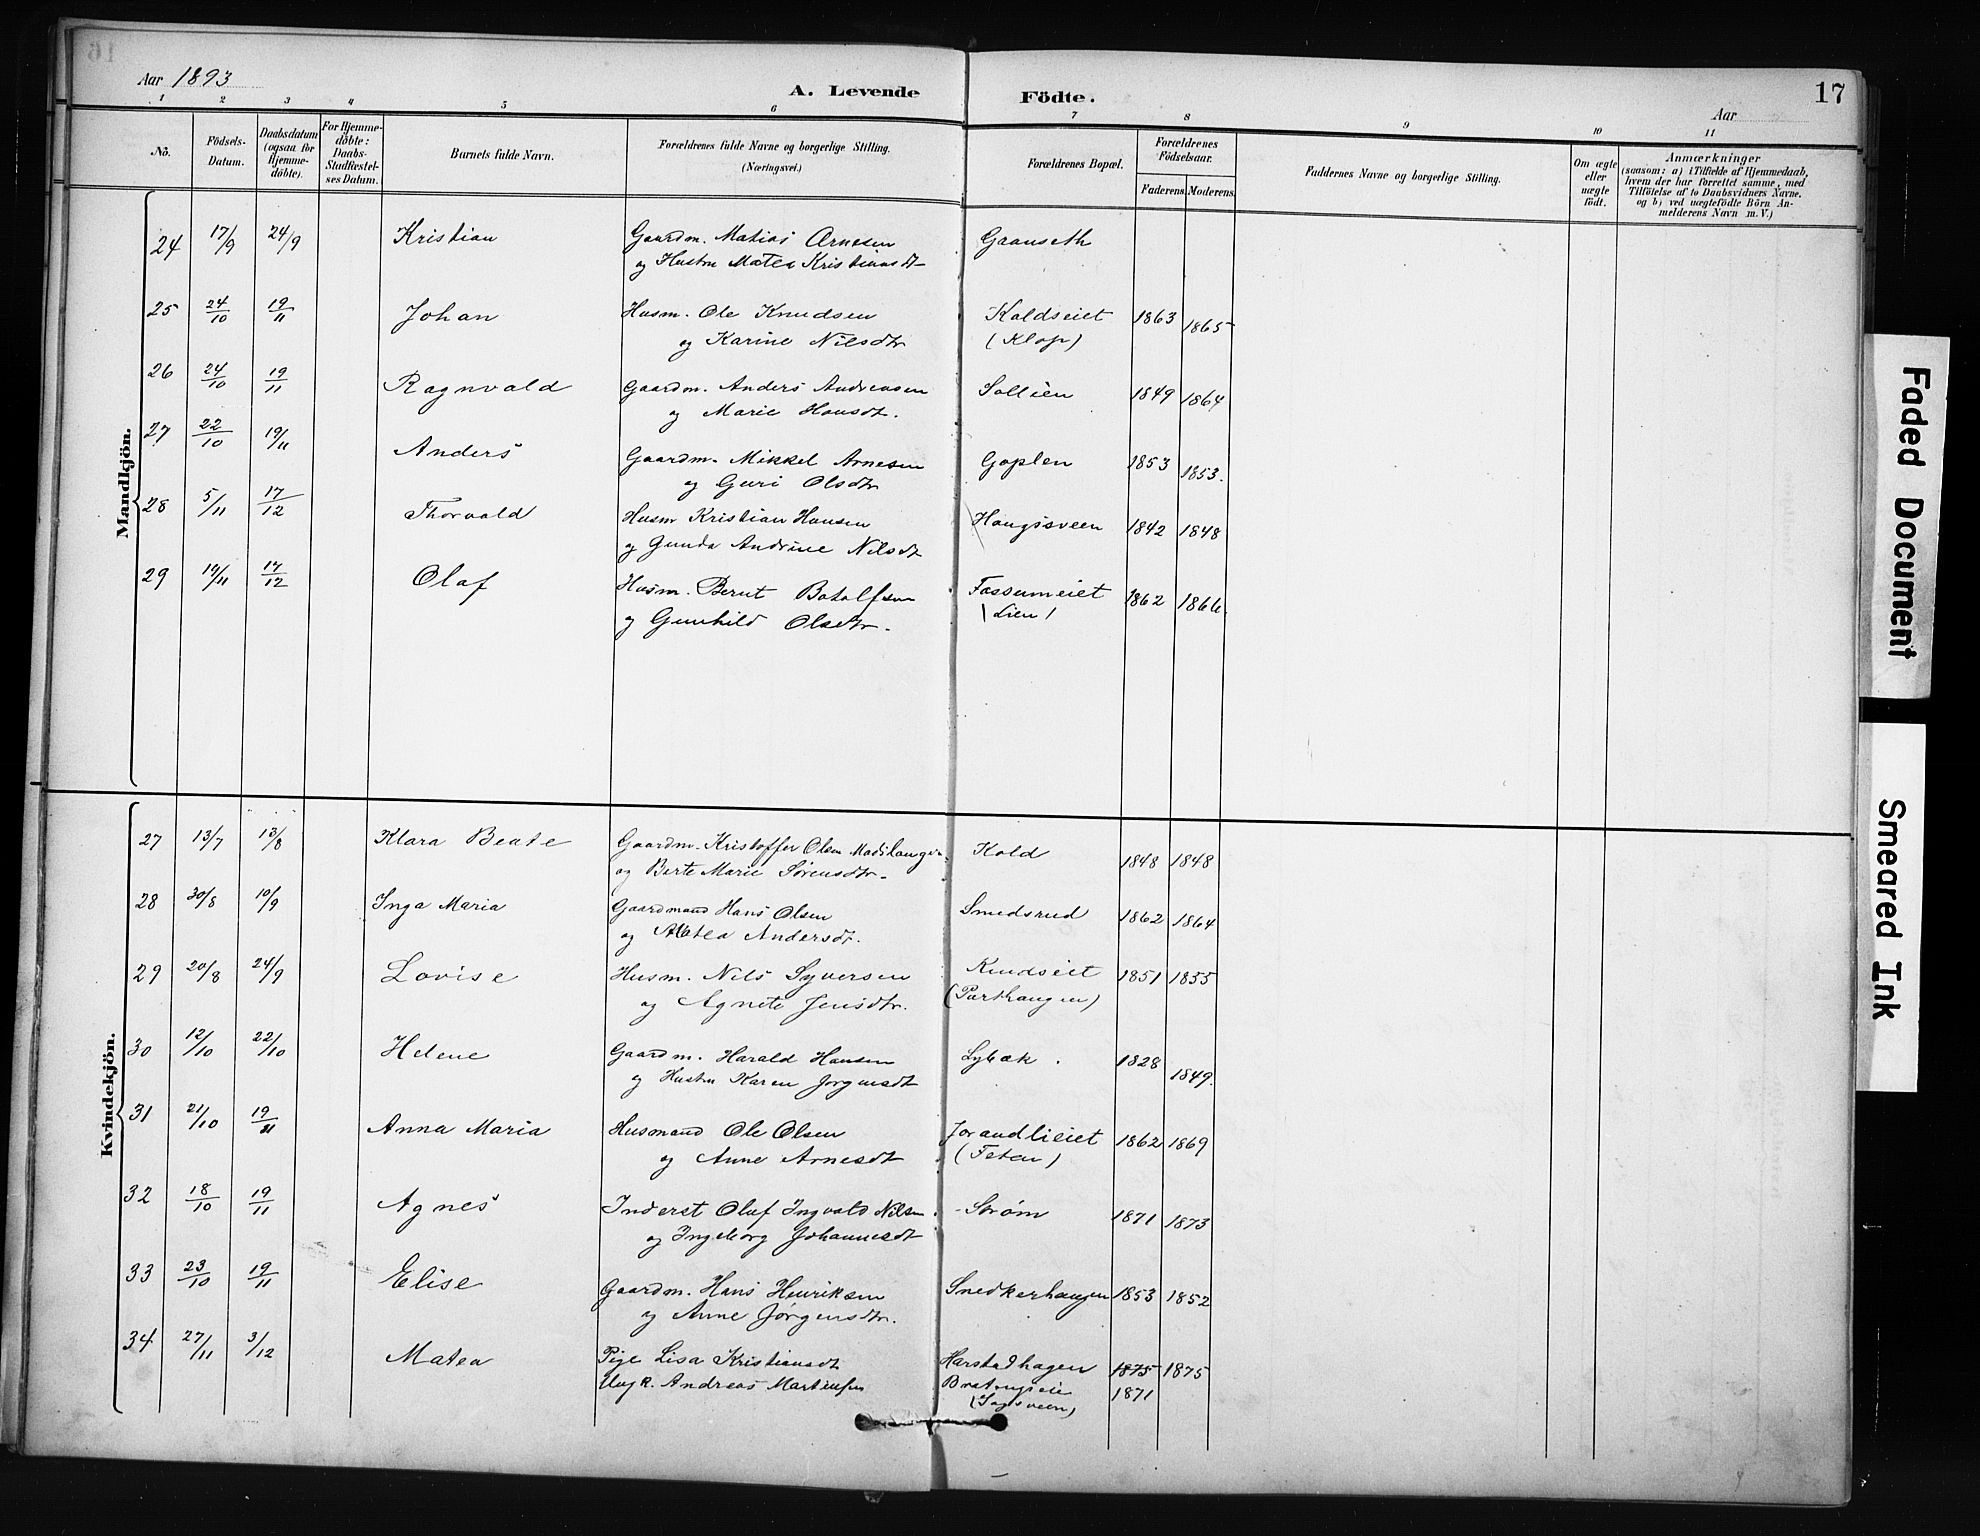 Aar 1893
A. Levende Födte.
Aar
17
1 2 3 4 5 6 7 8 9 10 11
No.
Födsels-Datum.
Daabsdatum (ogsaa for Hjemme-döbte).
For Hjemme-döbte: Daabs-Stadfæstel-ses Datum.
Barnets fulde Navn.
Forældrenes fulde Navne og borgerlige Stilling. (Næringsvei.)
Forældrenes Bopæl.
Forældrenes Födselsaar.
Faderens. Moderens.
Faddernes Navne og borgerlige Stilling.
Om ægte eller uægte födt.
Anmærkninger
(saasom: a) i Tilfælde af Hjemmedaab,
hvem der har forrettet samme, med
Tilföielse af to Daabsvidners Navne.
og b) ved uægtefödte Börn An-
melderens Navn m. V.)
Mandkjön.
24 17/9 24/9 Kristian Gaardm. Matias Arnesen Graanseth
og Hustru Matea Kristiansdt
25 24/10 19/11 Johan Husm. Ole Knudsen Koldseiet 1863 1865
og Karine Nilsdtr (Klop)
26 24/10 19/11 Ragnvald Gaardm. Anders Andreasen Sollien 1849 1864
og Marie Hansdt.
27 22/10 19/11 Anders Gaardm. Mikkel Arnesen Goplen 1853 1853.
og Guri Olsdtr
28 5/11 17/12 Thorvald Husm Kristian Hansen Haugsveen 1842 1848
og Gunda Andrine Nilsdt
29 19/11 17/12 Olaf Husm. Bernt Botolfsen Fossumeiet 1862 1866.
og Gunhild Olsdtr. (Lien)
Kvindekjön.
27 13/7 13/8 Klara Beate Gaardm. Kristoffer Olsen Madshaugen Kold 1848 1848
og Berte Marie Sørensdtr.
28 30/8 10/9 Inga Maria Gaardmand Hans Olsen Smedsrud 1862 1864
og Matea Andersdt.
29 20/8 24/9 Lovise Husm. Nils Syversen Rudseiet 1851 1855
og Agnete Jensdtr. (Parthaugen)
30 12/10 22/10 Helene Gaardm. Harald Hansen Lybæk. 1828 1849.
og Hustru Karen Jørgensdt
31 21/10 19/11 Anna Maria Husmand Ole Olsen Jorandlieiet 1862 1869
og Anne Arnesdt (Feten)
32 18/10 19/11 Agnes Inderst Oluf Ingvald Nilsen Strøm 1871 1873
og Ingeborg Johannesdt
33 23/10 19/11 Elise Gaardm. Hans Henriksen Snedkerhaugen 1853 1852
og Anne Jørgensdtr.
34 27/11 3/12 Matea Pige Lisa Kristiansdt Harstadhagen 1875 1875
Ungk. Andreas Martinsen 1871
(Sagsveen)
Faded Document
Smeared Ink